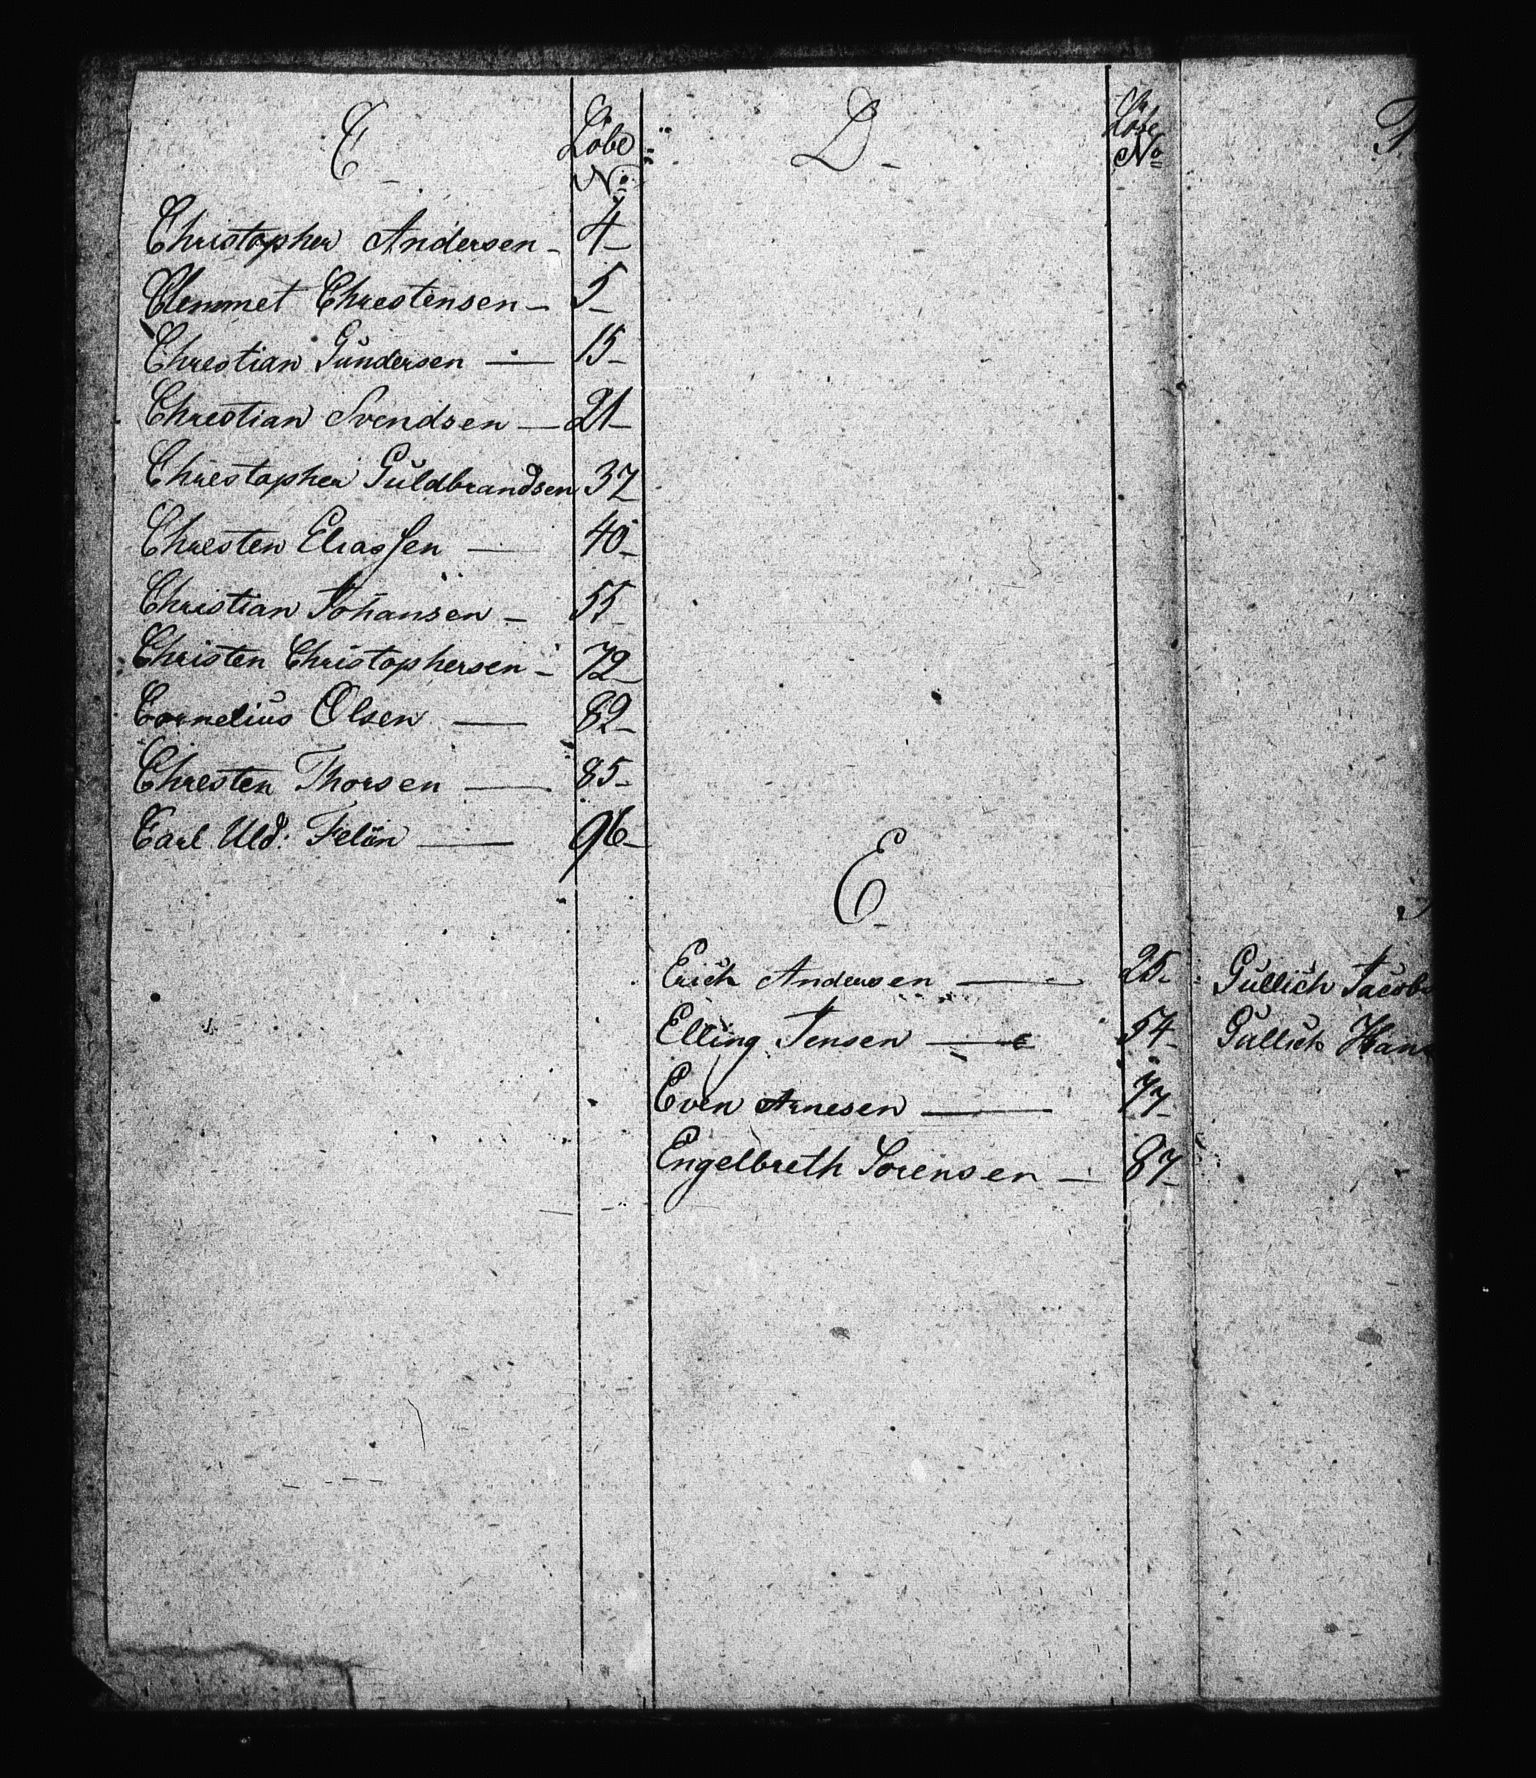 C
Löbe
No
Christopher Andersen - 4
Clemmet Chrestensen - 5
Chrestian Gundersen - 15
Chrestian Svendsen - 21
Chrestopher Guldbrandsen 37
Chresten Eliassen - 40
Christian Johansen - 55
Christen Christophersen - 72
Cornelius Olsen - 82
Chresten Thorsen - 85
Carl Uld: - 96
D
Löbe
No
E
Erich Andersen - 25
Elling Jensen - 54
Even Arnesen - 77
Engelbreth Sörensen - 87
Gullich Jacob
Gullich Han